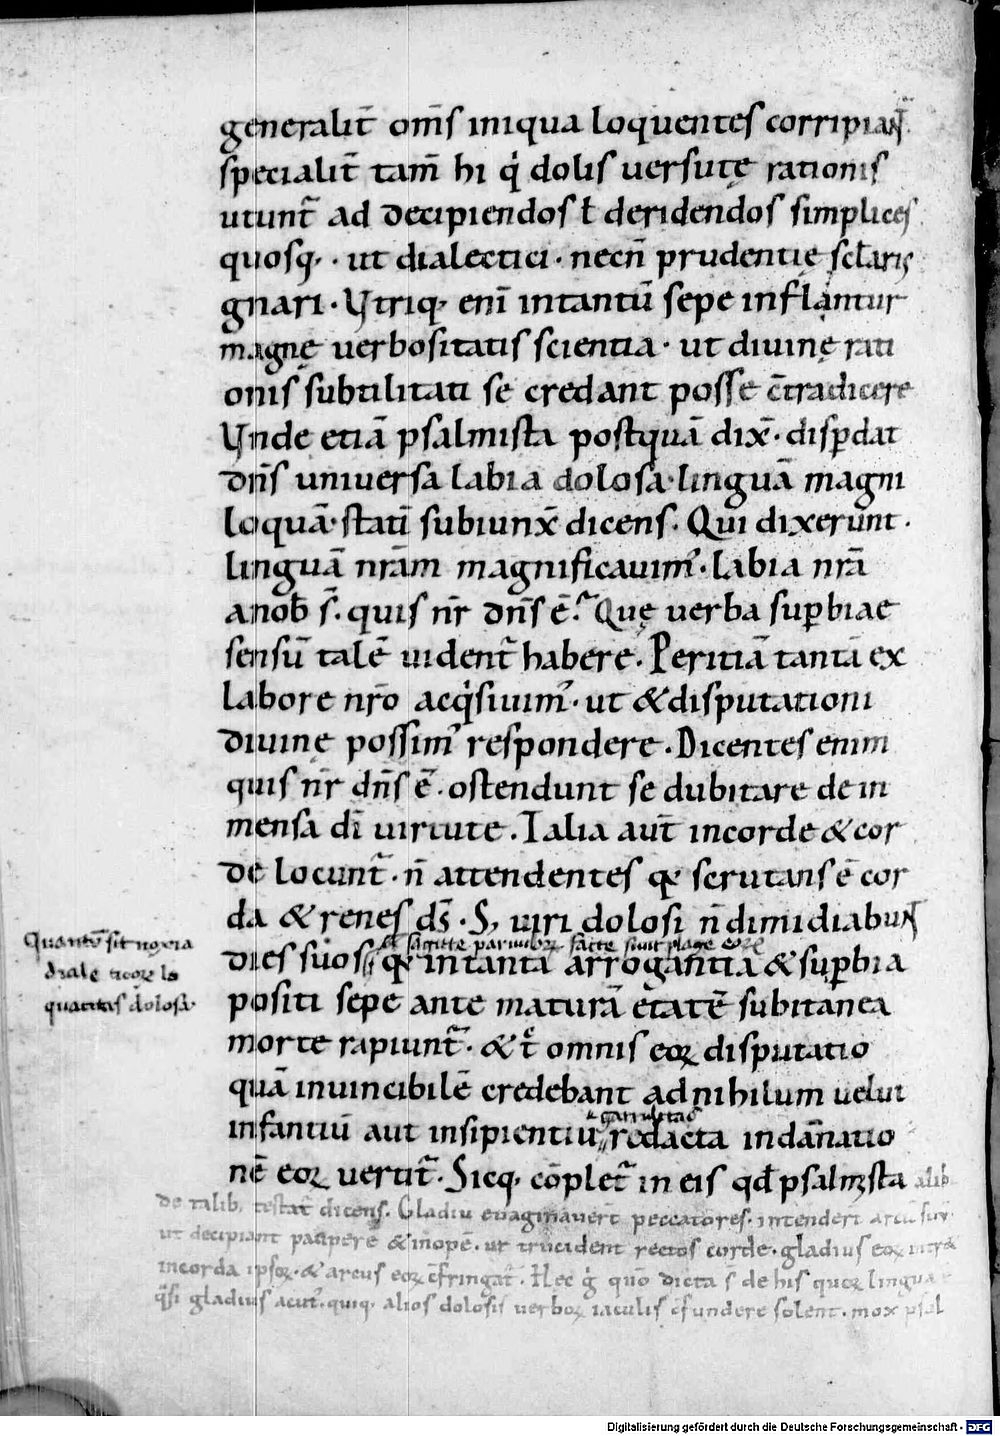 generalit̄ om̄s iniqua loquentes corripiant̄
specialit̄ tam̄ hi q̇ dolis versutę rationis
utunt̄ ad decipiendos ł deridendos simplices
quosq; · ut dialectici · necn̄ prudentię sclaris
gnari · Vtriq; eni̅ intantu̅ sepe inflantur
magnę verbositatis scientia · ut divinę rati
onis subtilitati se credant posse c̄tradicere
Vnde etiā psalmista postquā dix̄ · disꝑdat
dn̄s universa labia dolosa · linguā magni
loquā · stati̅ subiunx̄ dicens · Qui dixerunt ·
linguā nrām magnificavimꝰ · Labia nrā
anob̄ s̄ · quis nr̄ dn̄s ē? Quę verba suꝑbiae
sensu̅ talē vident̄ habere · Peritiā tantā ex
labore nrō acq̇sivimꝰ · ut & disputationi
divinę possimꝰ respondere · Dicentes enim
quis nr̄ dn̄s ē · ostendunt se dubitare de in
mensa di̅ virtute · Talia aut̄ incorde & cor
de locunt̄ · n̄ attendentes qꝛ scrutans ē cor
da & renes ds̄ · S; viri dolosi n̄ dimidiabunt̄
& sagitte parvuloꝝ facte sunt plage eoꝝ
dies suos qꝛ in tanta arrogantia & suꝑbia
positi sepe ante maturā etatē subitanea
morte rapiunt̄ · & t̄ omnis eoꝝ disputatio
quā invincibilē credebant ad nihilum velut
garrulitas
infantiu̅ aut insipientiu̅ redacta indānatio
nē eoꝝ vertit̄ · Sicq; cōplet̄ in eis qd̄ psalmista alib
de talib; testat̄ dicens · Gladiu̅ evaginaver̄t peccatores · intender̄t arcu̅ suu̅
ut decipiant paupere & inopē · ut trucident rectos corde · gladius eoꝝ intr&
incorda ipsoꝝ · & arcus eoꝝ c̄fringat̄ · Hec g̊ quō dicta s̄ de his quoꝝ lingua
q̇si gladius acutꝰ · quiq; alios dolosis verboꝝ iaculis c̄fundere solent · mox psal
Quantu̅ sit noxia
loquacitas dolosa ·